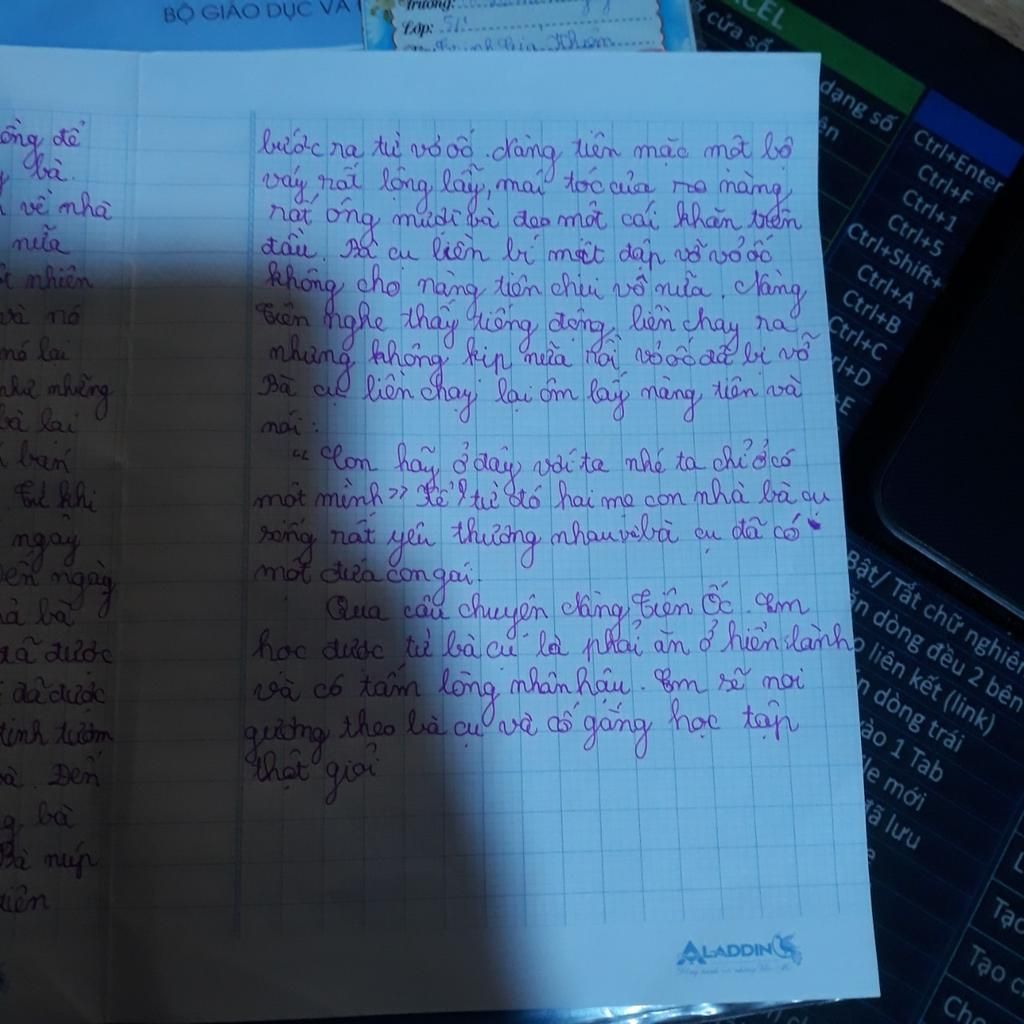 BỘ GIÁO DỤC VÀ
Trường:
Lớp: 5/1
ông để
bà.
về nhà
nữa
nhiên
và nó
nó lại
như những
bà lại
bạn
Từ khi
ngày
Đến ngày
bà
đã được
đã được
tinh tươm
bà. Đến
bà
Bà núp
tiên
bước ra từ vỏ ốc. Nàng tiên mặc một bộ
váy rất lộng lẫy, mái tóc của nàng
rất óng mượt bà đạo một cái khăn trên
đầu. Bà cụ liền bí mật đập vỡ vỏ ốc
không cho nàng tiên chui vô nữa. Nàng
tiên nghe thấy tiếng động, liền chạy ra
nhưng không kịp nữa rồi vỏ ốc đã bị vỡ
Bà cụ liền chạy lại ôm lấy nàng tiên và
nói:
" Con hãy ở đây với ta nhé ta chỉ ở có
một mình >> Kể từ đó hai mẹ con nhà bà cụ
sống rất yêu thương nhau và bà cụ đã có
một đứa con gái.
Qua câu chuyện Nàng Tiên Ốc. Em
học được từ bà cụ là phải ăn ở hiền lành
và có tấm lòng nhân hậu. Em sẽ noi
gương theo bà cụ và cố gắng học tập
thật giỏi
ALADDIN
CEL
cửa sổ
dạng số
Ctrl+Enter
Ctrl+F
Ctrl+1
Ctrl+5
Ctrl+Shift+
Ctrl+A
Ctrl+B
Ctrl+C
rl+D
+E
Bật/ Tắt chữ nghiên
dòng đều 2 bên
liên kết (link)
dòng trái
vào 1 Tab
file mới
đã lưu
Tạo
Tạo c
Cho